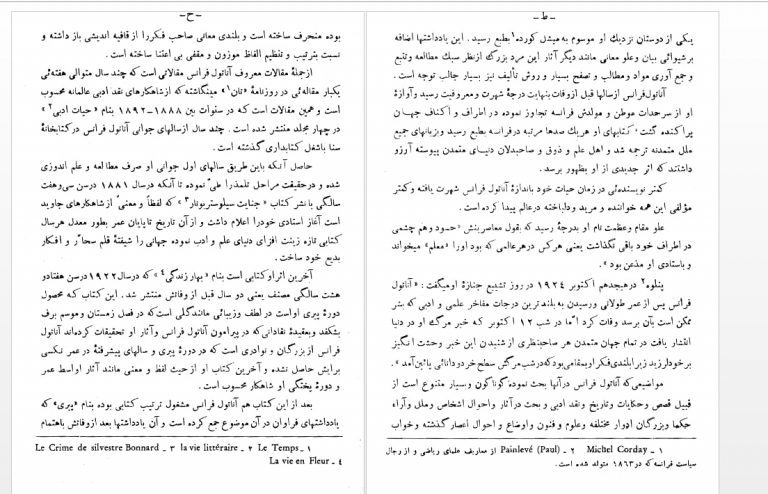 -ح-
بوده منحرف ساخته است و بلندی معانی صاحب فکررا از قافیه اندیشی باز داشته و
نسبت بترتیب و تنظیم الفاظ موزون و مقفی بی اعتنا ساخته است.
ازجملهٔ مقالات معروف آناتول فرانس مقالاتی است که چند سال متوالی هفته‌ئی
یکبار مقاله‌ئی در روزنامهٔ «تان۱» مینگاشته که ازشاهکارهای نقد ادبی عالمانه محسوب
است و همین مقالات است که در سنوات بین ۱۸۸۸-۱۸۹۲ بنام «حیات ادبی۲»
در چهار مجلد منتشر شده است. چند سال ازسالهای جوانی آناتول فرانس در کتابخانهٔ
سنا باشغل کتابداری گذشته است.
حاصل آنکه باین طریق سالهای اول جوانی او صرف مطالعه و علم اندوزی
شده و درحقیقت مراحل تلمذرا طی نموده تا آنکه درسال ۱۸۸۱ درسن سی‌وهفت
سالگی با نشر کتاب «جنایت سیلوستربونار۳» که لفظاً و معنی از شاهکارهای جاوید
است آغاز استادی خودرا اعلام داشت و از آن تاریخ تا پایان عمر بطور معدل هرسال
کتابی تازه زینت افزای دنیای علم و ادب نموده جهانی را شیفتهٔ قلم سحار و افکار
بدیع خود ساخت.
آخرین اثراو کتابی است بنام «بهار زندگی۴» که درسال ۱۹۲۲ درسن هفتادو
هشت سالگی مصنف یعنی دو سال قبل از وفاتش منتشر شد. این کتاب که محصول
دورهٔ پیری اواست در لطف وزیبائی مانندگلی است که در فصل زمستان وموسم برف
بشکفد وبعقیدهٔ نقادانی که در پیرامون آناتول فرانس وآثار او تحقیقات کرده‌اند آناتول
فرانس از بزرگان و نوادری است که در دورهٔ پیری و سالهای پیشرفتهٔ در عمر نکسی
برایش حاصل نشده وآخرین کتاب او از حیث لفظ و معنی مانند آثار اواسط عمر
و دورهٔ پختگی او شاهکار محسوب است.
بعد از این کتاب هم آناتول فرانس مشغول ترتیب کتابی بوده بنام «پیری» که
یادداشتهای فراوان در آن موضوع جمع کرده است و آن یادداشتها بعد ازوفاتش باهتمام
۱ - Le Temps ۲ - la vie littéraire ۳ - Le Crime de silvestre Bonnard
۴ - La vie en Fleur
-ط-
یکی از دوستان نزدیك او موسوم به میشل کورده۱ بطبع رسید. این یادداشتها اضافه
بر شیوائی بیان وعلو معانی مانند دیگر آثار این مرد بزرگ ازنظر سبك مطالعه وتتبع
و جمع آوری مواد ومطالب و تصفح بسیار و روش تألیف نیز بسیار جالب توجه است.
آناتول‌فرانس ازسالها قبل ازوفات بنهایت درجهٔ شهرت ومعروفیت رسید وآوازهٔ
او از سرحدات موطن و مولدش فرانسه تجاوز نموده در اطراف و اکناف جهان
پراکنده گشت؛ کتابهای او هریك صدها مرتبه درفرانسه بطبع رسید وبزبانهای جمیع
ملل متمدنه ترجمه شد و اهل علم و ذوق و صاحبدلان دنیای متمدن پیوسته آرزو
داشتند که اثر جدیدی از او بظهور برسد.
کمتر نویسنده‌ئی در زمان حیات خود باندازهٔ آناتول فرانس شهرت یافته وکمتر
مؤلفی این همه خواننده و مرید ودلباخته درعالم پیدا کرده است.
علو مقام وعظمت نام او بدرجهٔ رسید که بقول معاصرینش «حسود وهم چشمی
در اطراف خود باقی نگذاشت یعنی هرکس درهرعالمی که بود اورا «معلم» میخواند
و باستادی او مذعن بود».
پنلوه۲ درهیجدهم اکتوبر ۱۹۲۴ در روز تشییع جنازهٔ اومیگفت: «آناتول
فرانس پس از عمر طولانی ورسیدن به بلندترین درجات مفاخر علمی و ادبی که بشر
ممکن است بآن برسد وفات کرد اما در شب ۱۲ اکتوبر که خبر مرگ او در دنیا
انتشار یافت در تمام جهان متمدن هر صاحبنظری از شنیدن این خبر وحشت انگیز
برخود لرزید زیرابلندی فکراوبمقامی بودکه‌درشب‌مرگش سطح خردودانائی پائین‌آمد».
مواضیعی‌که آناتول فرانس درآنها بحث نموده گوناگون وبسیار متنوع است از
قبیل قصص وحکایات وتاریخ ونقد ادبی و بحث درآثار واحوال اشخاص وملل وآراء
حکما وبزرگان ادوار مختلفه وعلوم و فنون واوضاع و احوال اعصارگذشته وخواب
۱ - Michel Corday ۲ - Painlevé (Paul) از معاریف علمای ریاضی و از رجال
سیاست فرانسه که در ۱۸۶۳ متولد شده است.